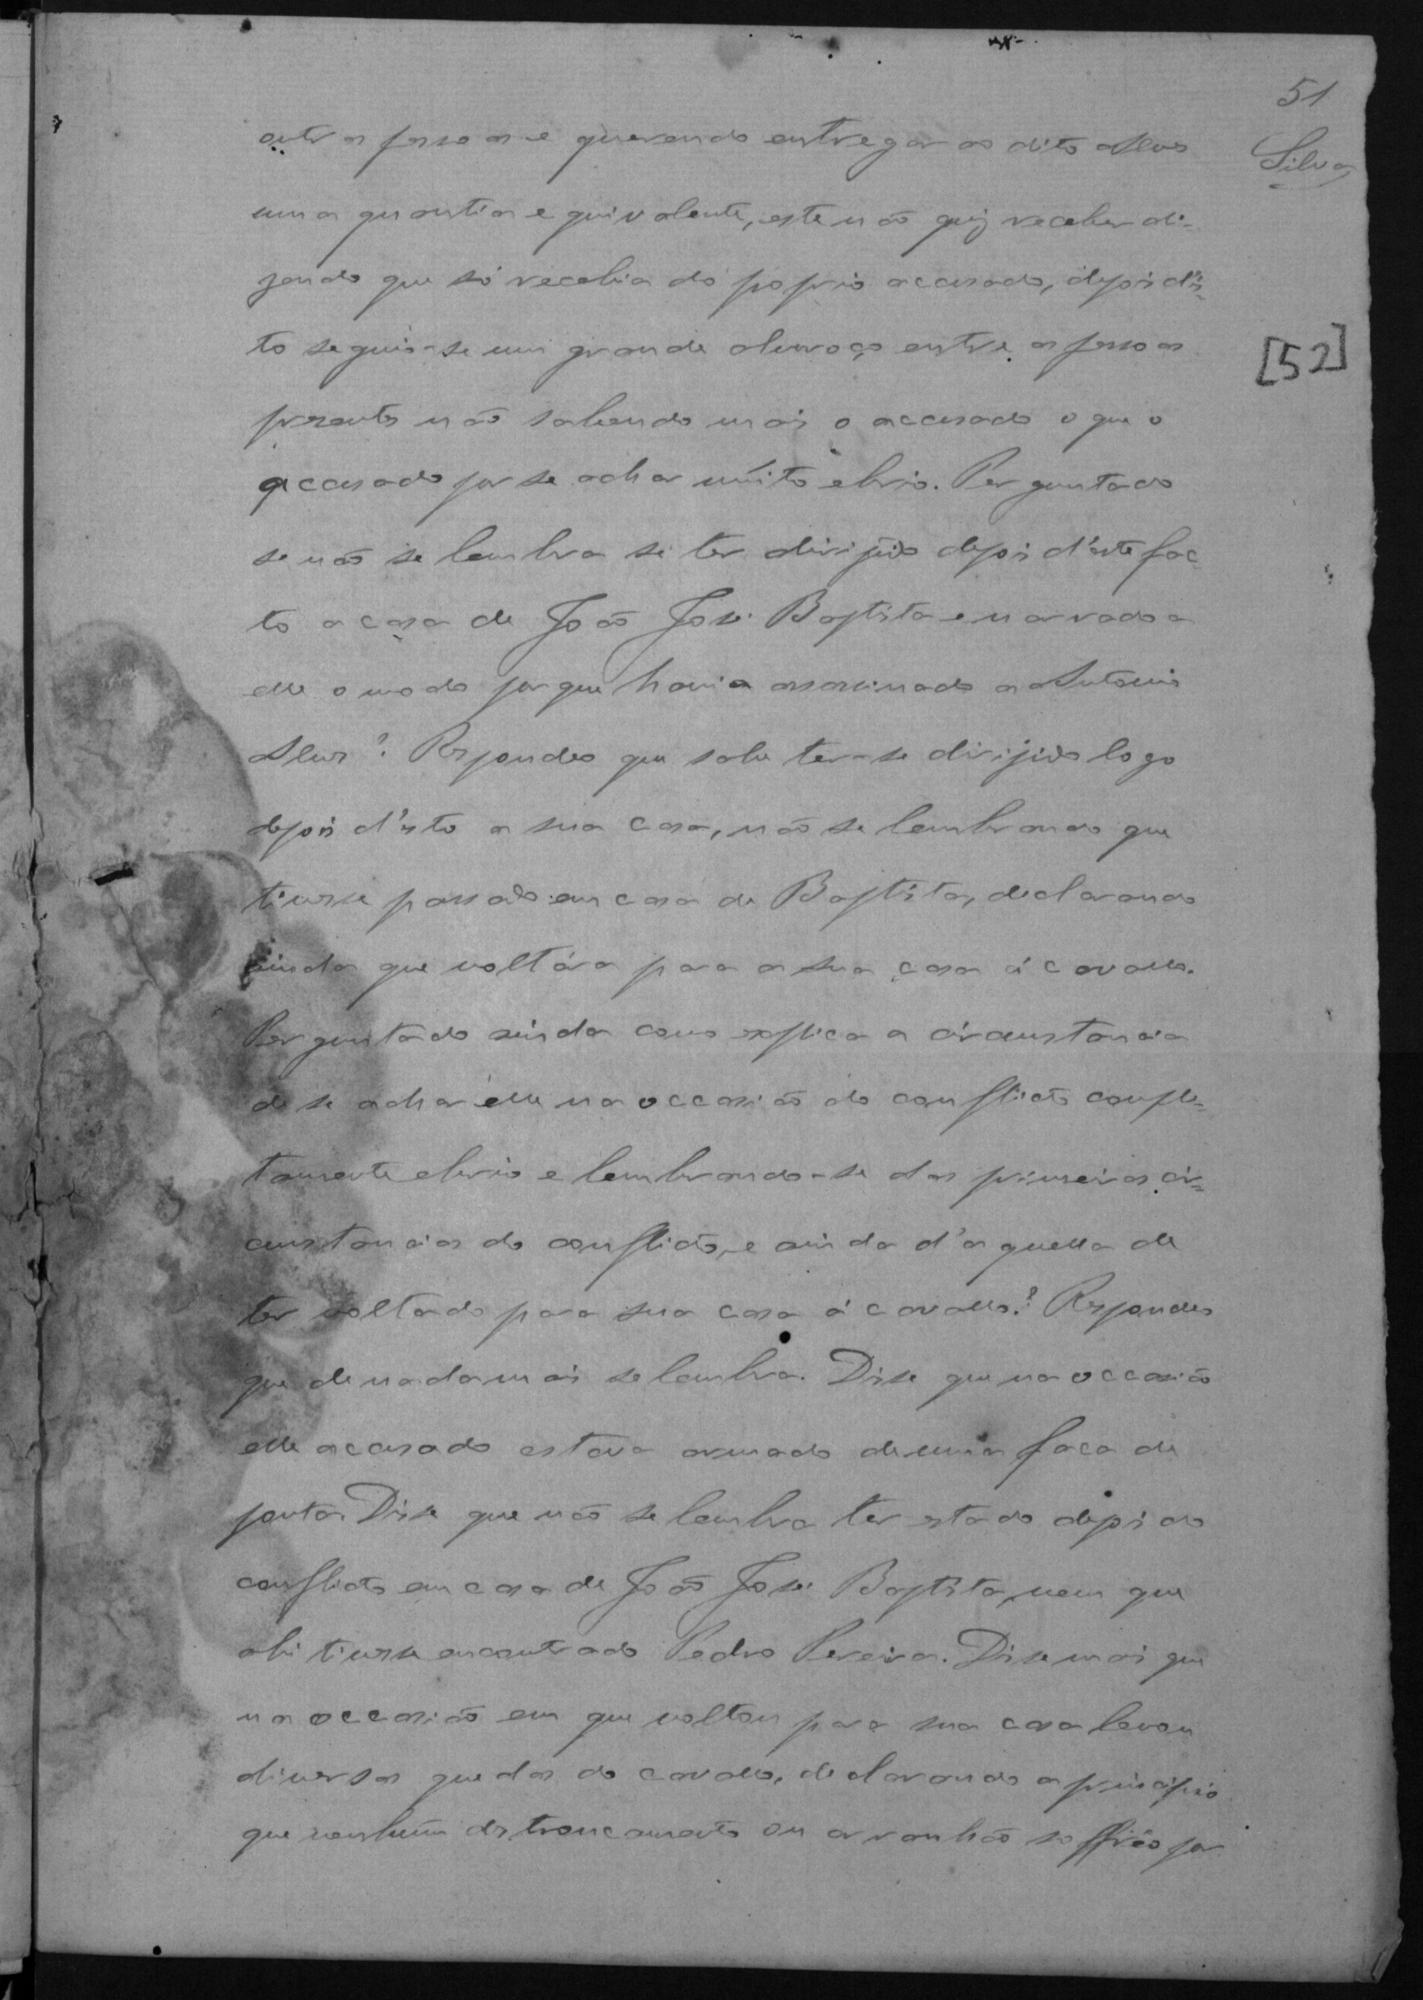 51
Silva
outras pessoas e querendo entregar ao dito Alves
uma quantia equivalente, este não quiz receber di-
zendo que só recebia do poprio accusado, depois d'is-
to seguio-se um grande alvoroço entre as pessoas
[52]
prezentes não sabendo mais o accusado o que o
accusado por se achar muito ebrio. Perguntado
se não se lembra se ter dirijido depois d'este fac-
to a casa de João José Baptista e narrado a
elle o modo porque havia assassinado a Antonio
Alves? Respondeo que sabe ter-se dirijido logo
depois d'isto a sua casa, não se lembrando que
tivesse passado em casa de Baptista, declarando
ainda que voltára para a sua casa á cavallo.
Perguntado ainda como explica a circunstancia
de se achar elle na occasião do conflicto comple-
tamente ebrio e lembrando-se das primeiras cir-
cunstancias do conflicto, e ainda d'aquella de
ter voltado para sua casa á cavallo? Respondeo
que de nada mais se lembra. Disse que na occasião
elle accusado estava armado de uma faca de
ponta. Disse que não se lembra ter estado depois do
conflicto em casa de João José Baptista, nem que
ahi tivesse encontrado Pedro Pereira. Disse mais que
na occasião em que voltou para sua casa levou
diversas quedas do cavallo, declarando a principio
que nenhum destroncamento ou arranhão soffrêo por